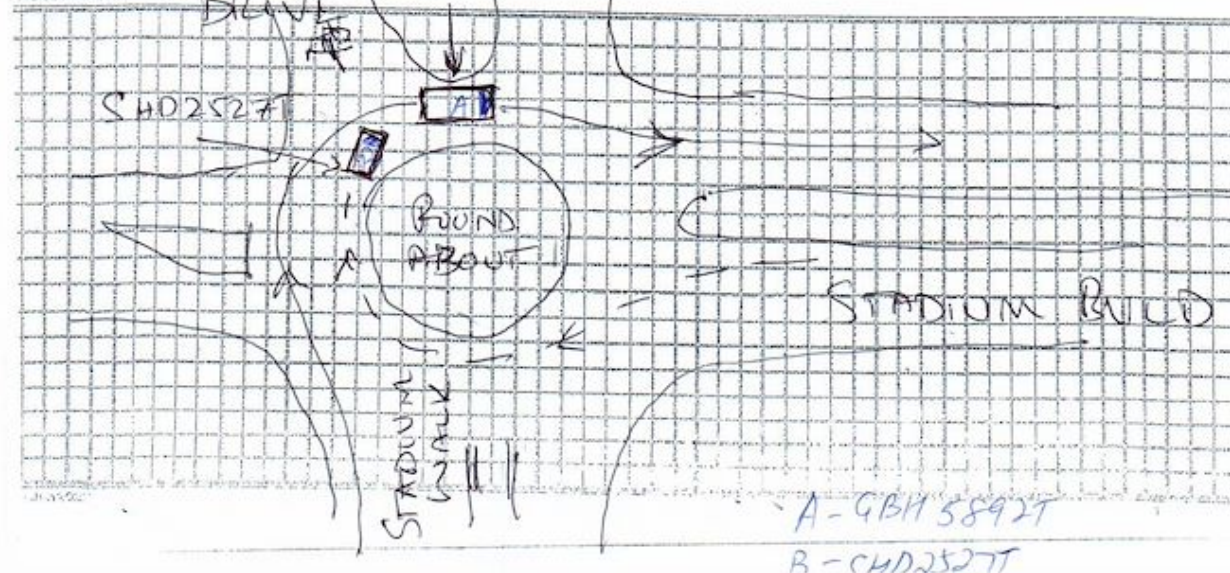 SHD2527T
A
ROUND
ABOUT
STADIUM BUILD
STADIUM
WALK
A - GBH 5892T
B - SHD2527T